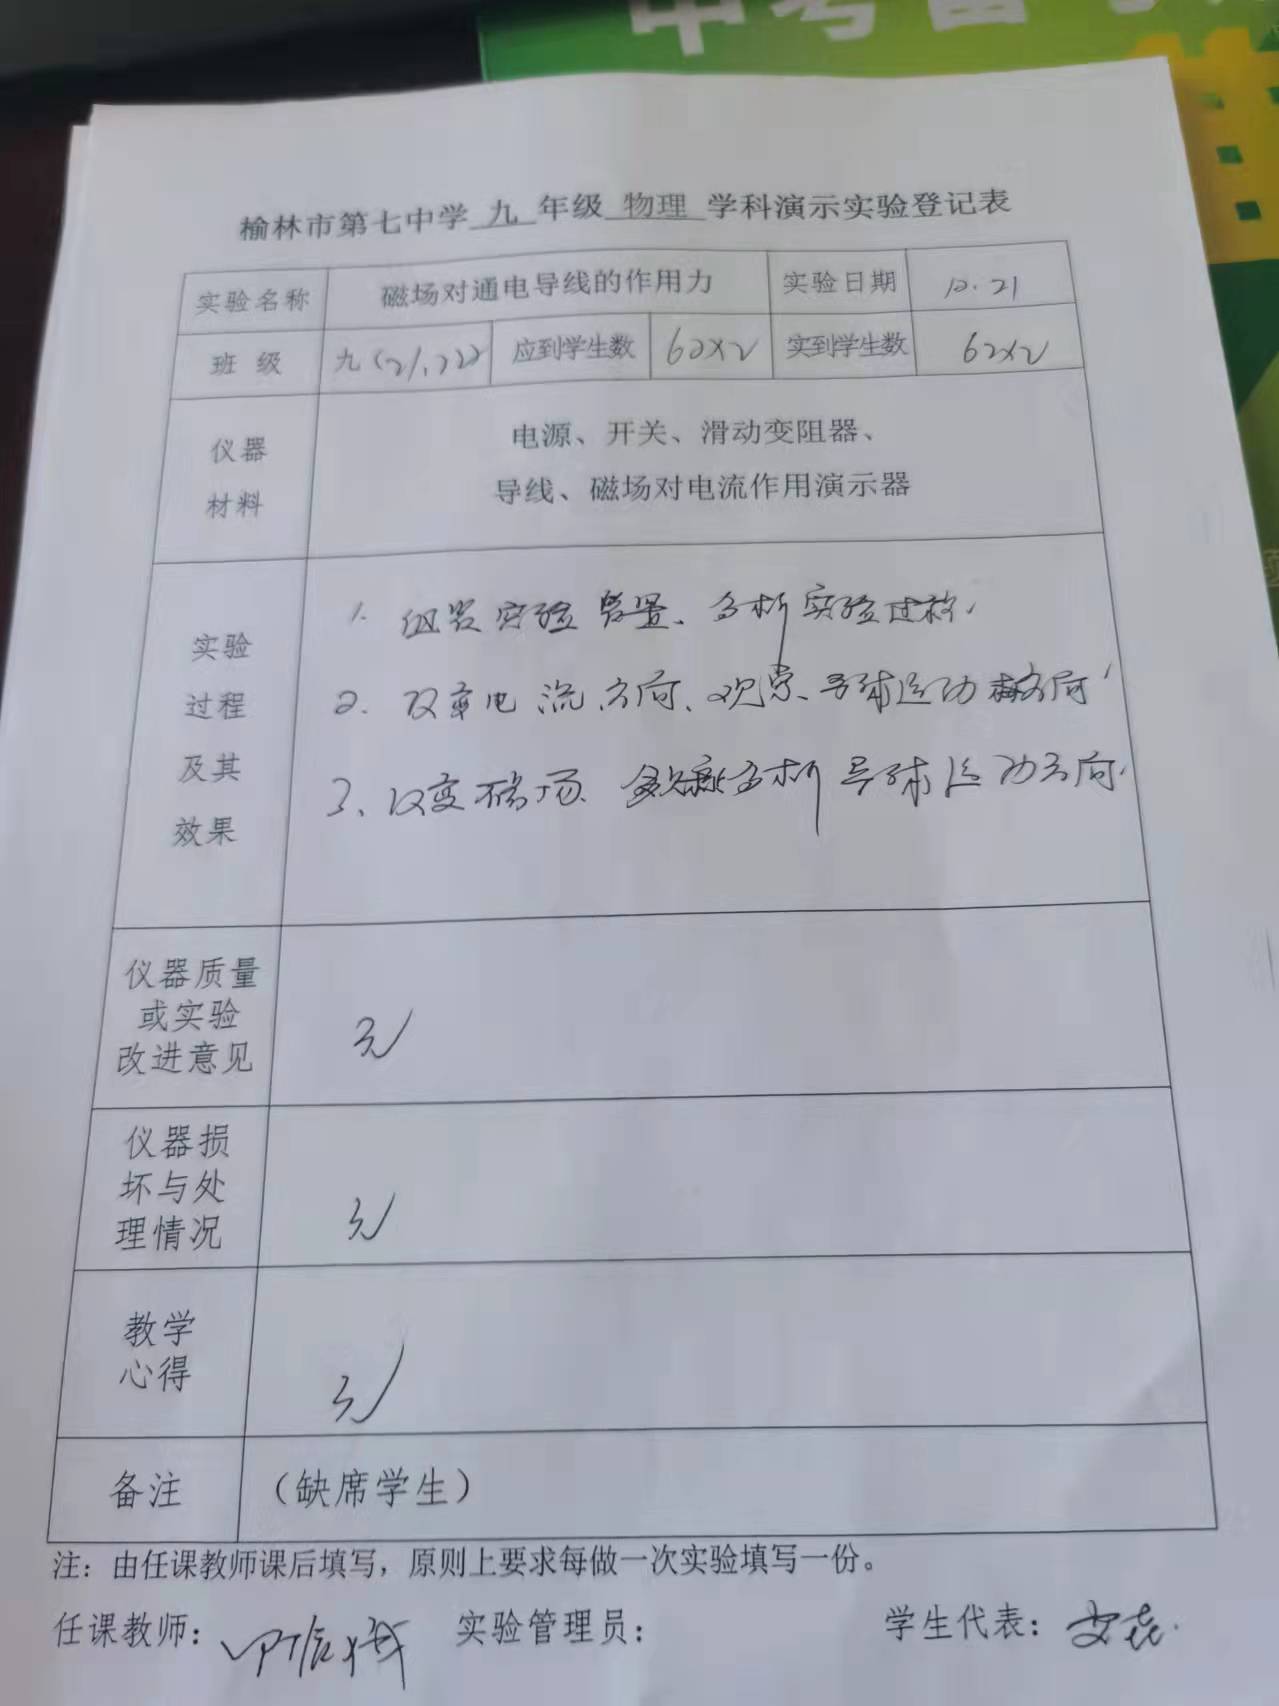 中考备
榆林市第七中学 九 年级 物理 学科演示实验登记表
实验名称 磁场对通电导线的作用力 实验日期 12.21
班 级 九(21.22) 应到学生数 62×2 实到学生数 62×2
仪器
材料
电源、开关、滑动变阻器、
导线、磁场对电流作用演示器
实验
过程
及其
效果
1. 组装实验装置、分析实验过程.
2. 改变电流方向、观察、导体运动方向
3、改变磁场、分析导体运动方向.
仪器质量
或实验
改进意见
无
仪器损
坏与处
理情况
无
教学
心得
无
备注 (缺席学生)
注：由任课教师课后填写，原则上要求每做一次实验填写一份。
任课教师： 实验管理员： 学生代表：